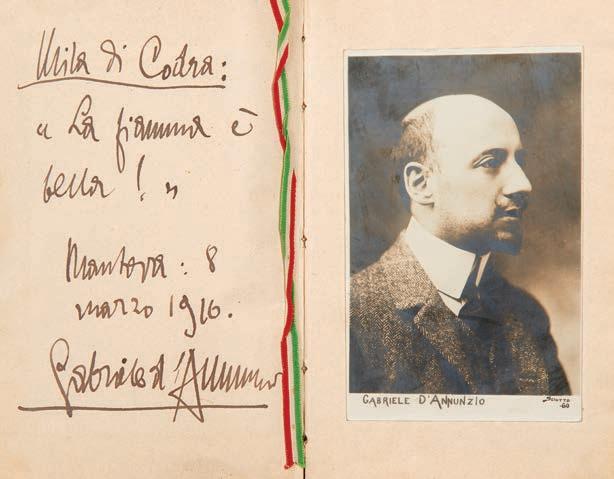 Mila di Codra:
« La fiamma è
bella ! »
Mantova : 8
marzo 1916.
Gabriele d'Annunzio
GABRIELE D'ANNUNZIO
SCIUTTO
60